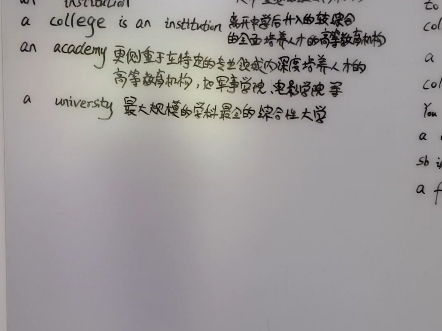 institution
a college is an institution 离开中学后升入的较综合
的全面培养人才的高等教育机构
an academy 更侧重于在特定的专业领域内深度培养人才的
高等教育机构，如军事学院、电影学院等
a university 最大规模的学科最全的综合性大学
to
col
a
col
You
a
sb i
a f